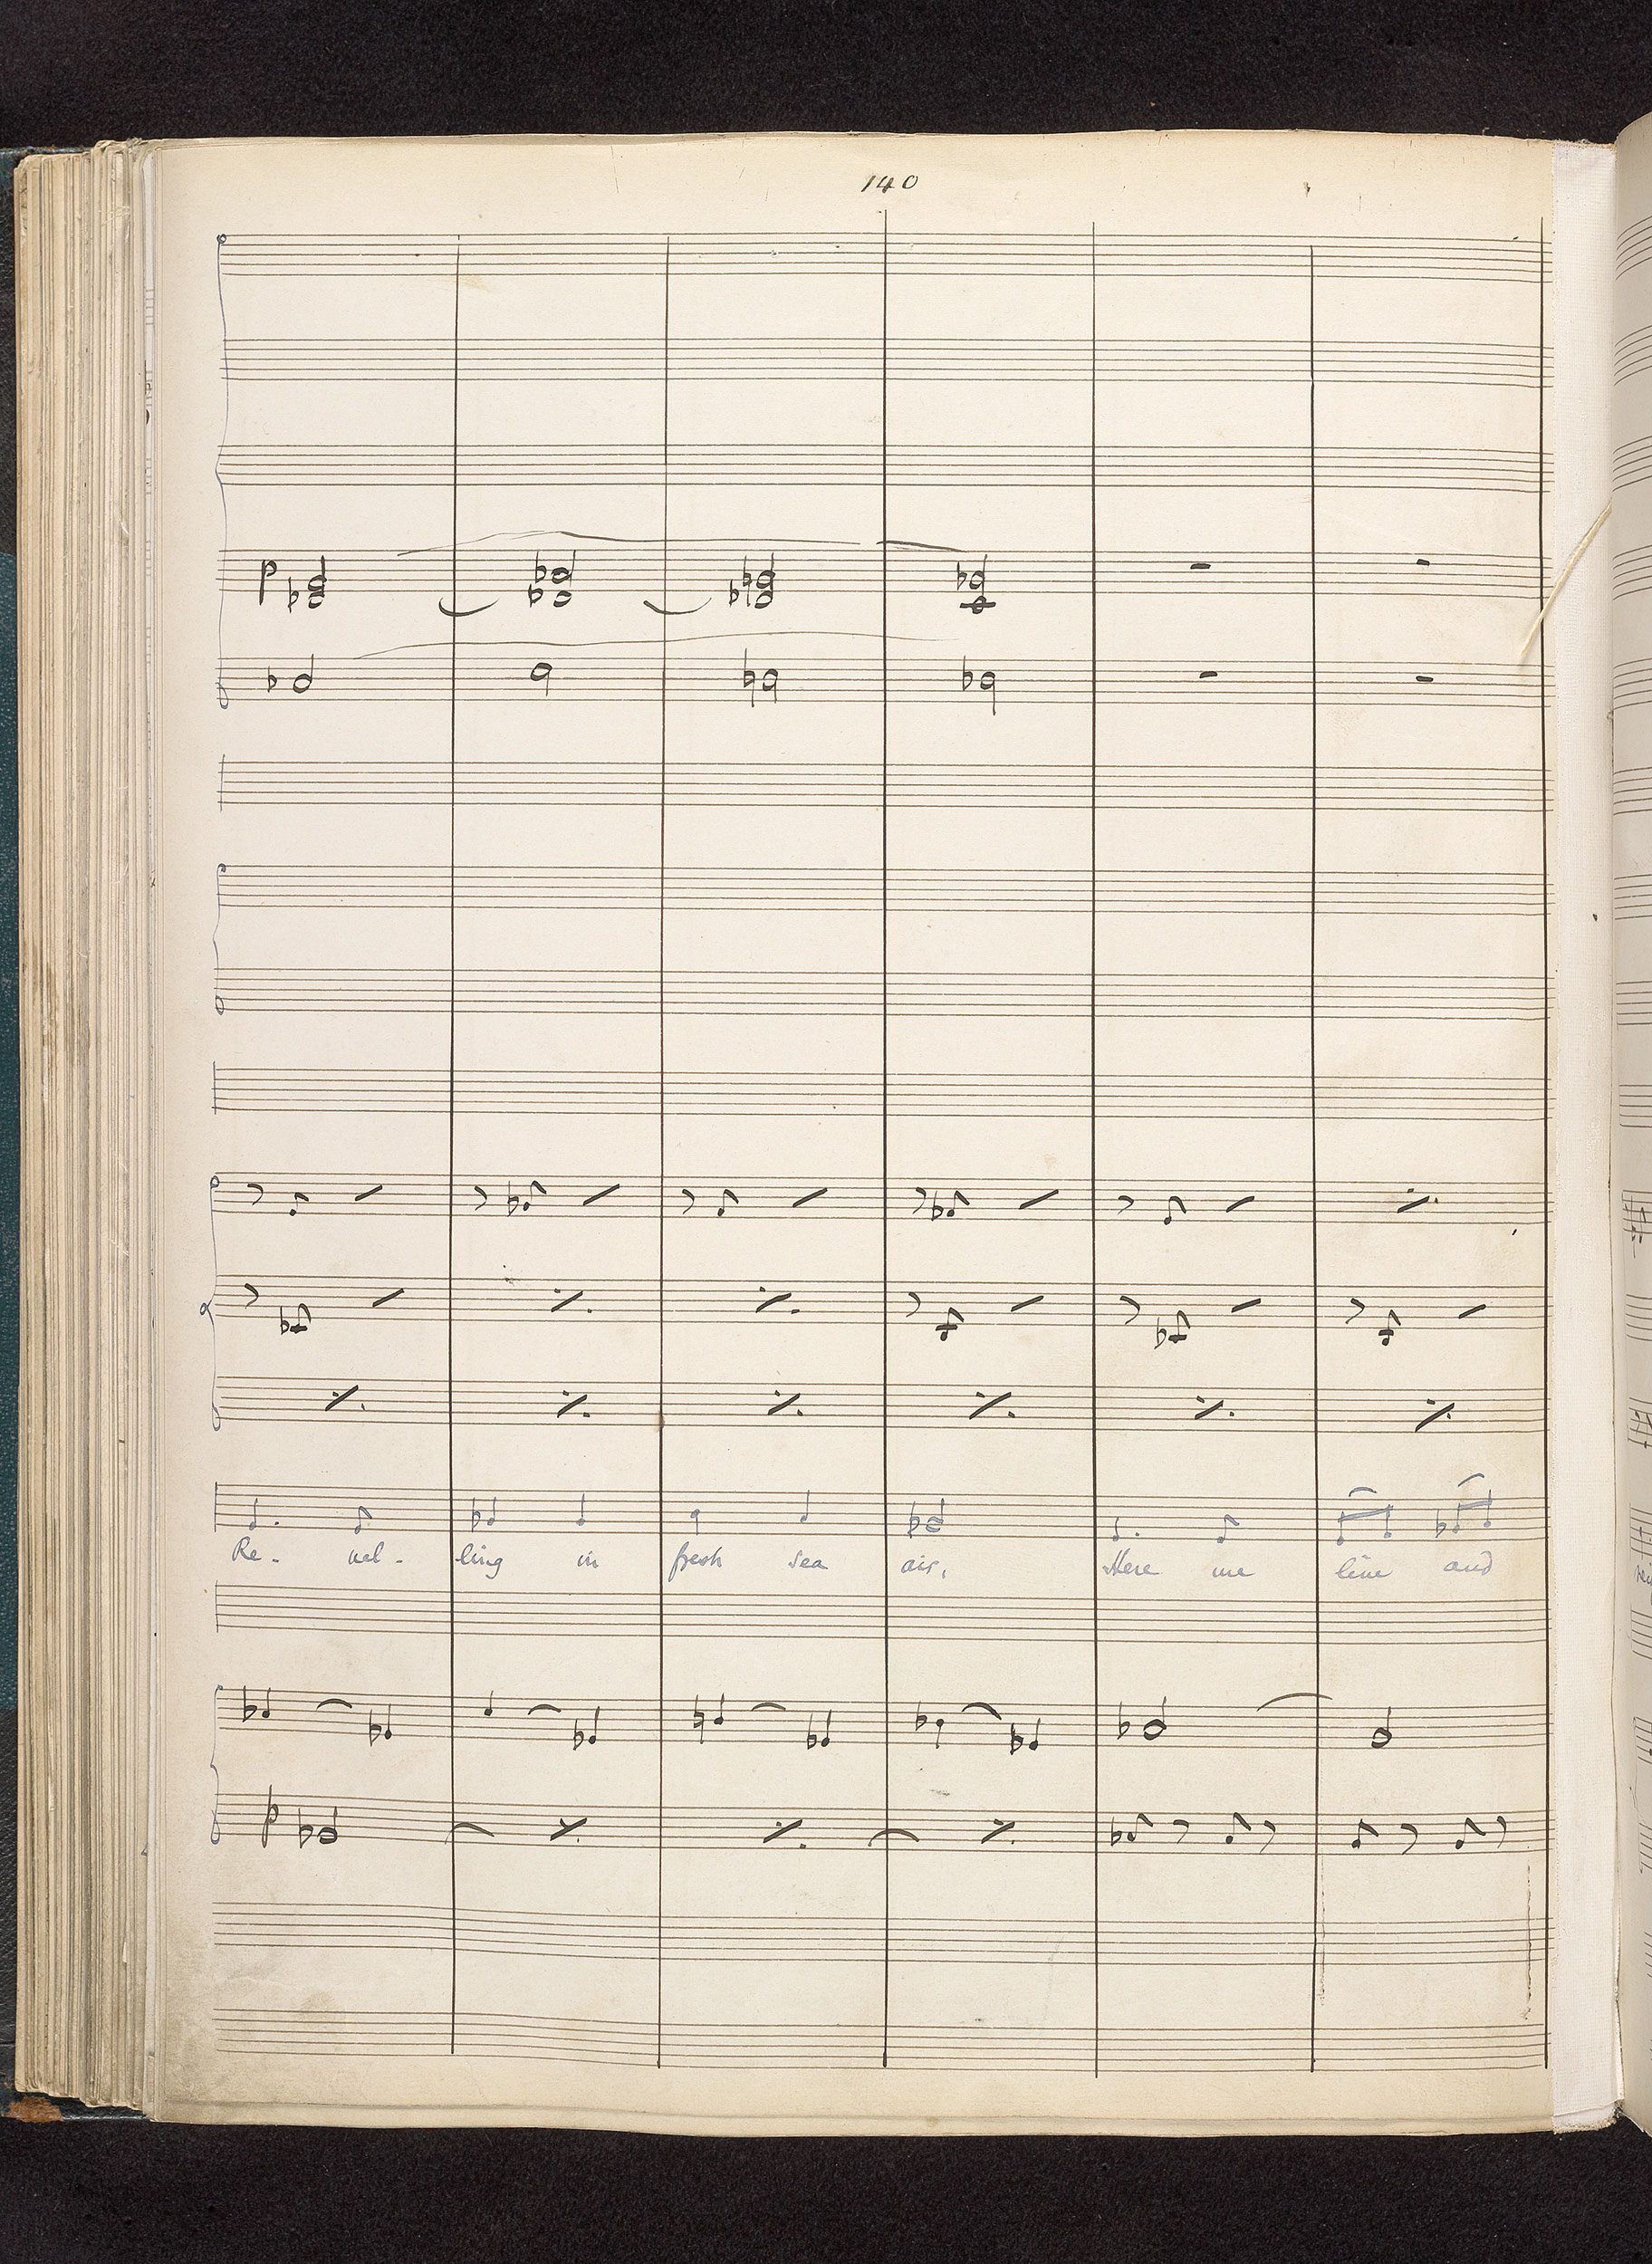 140
p
Re- vel- ling in fresh sea air, Here we live and
p